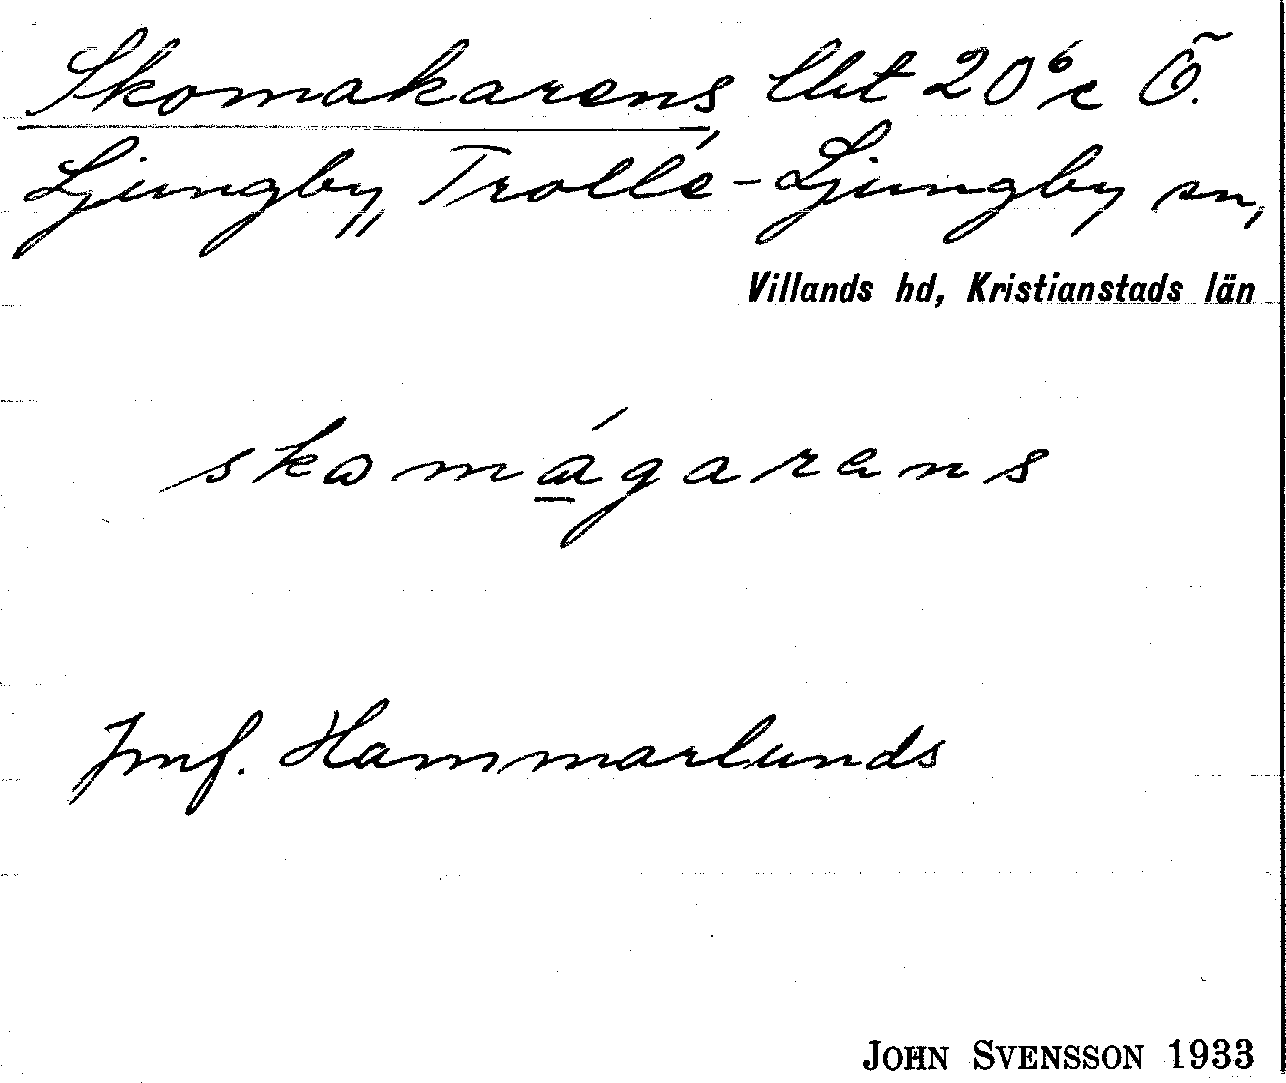 Skomakarens, lht 20⁶c Ö.
Ljungby, Trolle-Ljungby sn,
Villands hd, Kristianstads län
skomágarens
Jmf. Hammarlunds
JOHN SVENSSON 1933